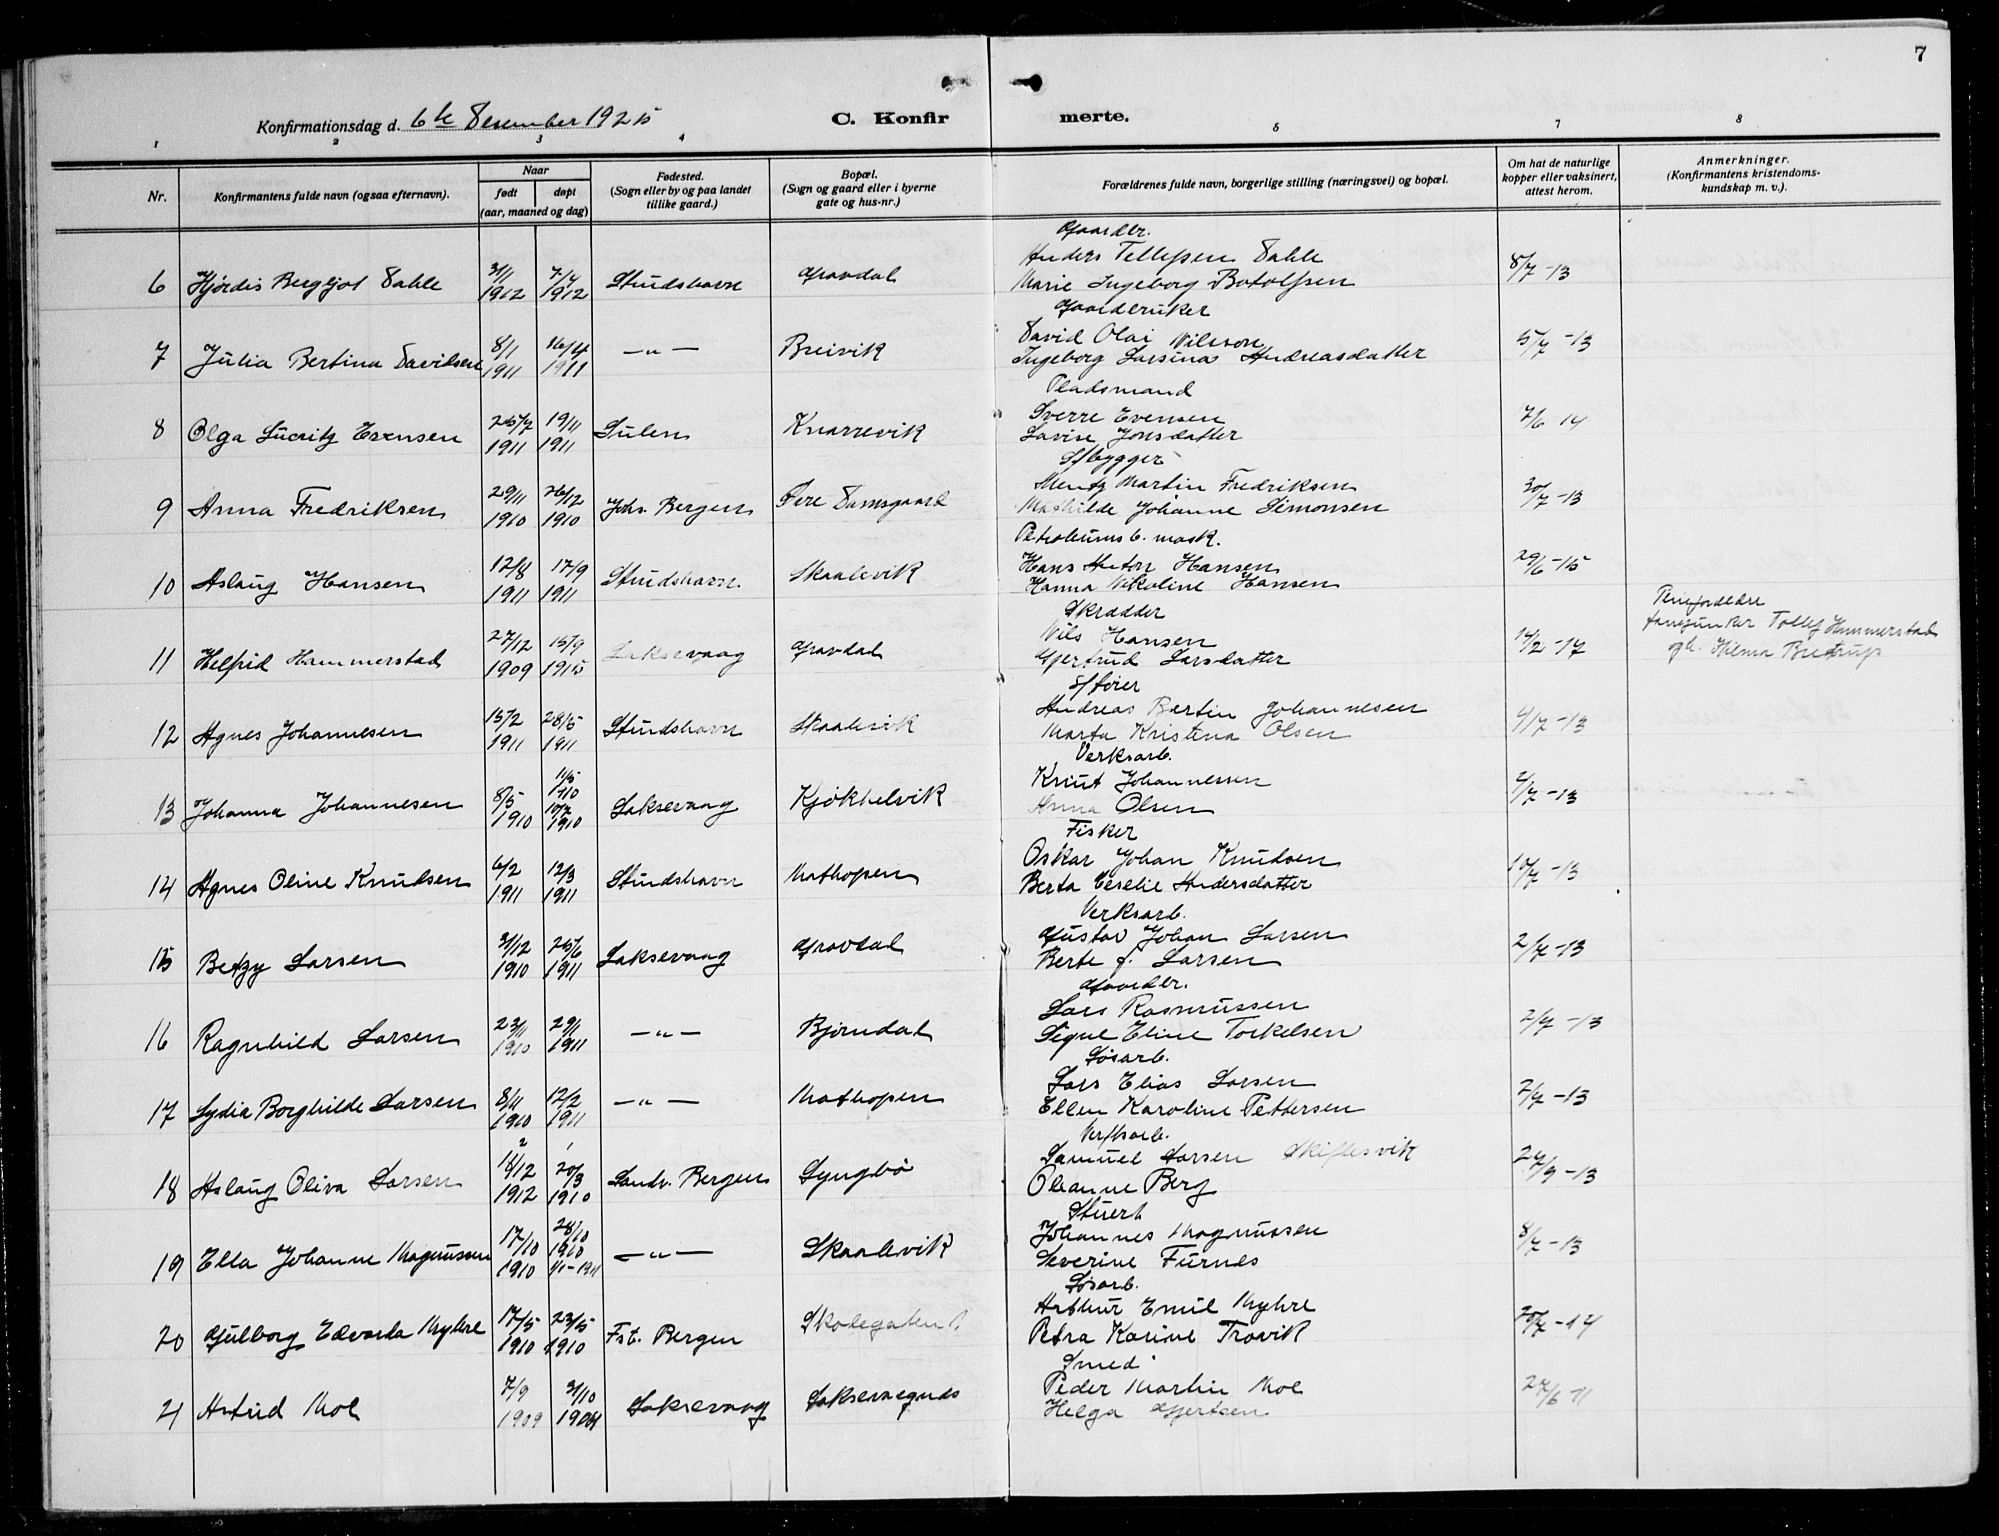 7
Konfirmationsdag d. 6te Desember 1925
C. Konfir merte.
1 2 3 4 5 7 8
Nr.
Konfirmantens fulde navn (ogsaa efternavn).
Naar
født døpt
(aar, maaned og dag)
Fødested.
(Sogn eller by og paa landet
tillike gaard.)
Bopæl.
(Sogn og gaard eller i byerne
gate og hus-nr.)
Forældrenes fulde navn, borgerlige stilling (næringsvei) og bopæl.
Om hat de naturlige
kopper eller vaksinert,
attest herom.
Anmerkninger.
(Konfirmantens kristendoms-
kundskap m. v.).
Gaardbr.
6 Hjørdis Bergljot Dahle 3/1 1912 7/4 1912 Studshavn Gravdal Anders Tellefsen Dahle
Marie Ingeborg Botolfsen 8/7 -13
Gaardbruker
7 Julia Bertina Davidsen 8/1 1911 16/4 1911 -"- Breivik David Olai Nilsson
Ingeborg Larsina Andreasdatter 5/7 -13
Pladsmand
8 Olga Lucritz Evensen 25/7 1911 19/11 1911 Sulen Knarrevik Sverre Evensen
Lavise Jonsdatter 7/6 14
Sfbygger
9 Anna Fredriksen 29/11 1910 26/12 1910 Johs. Bergen Øvre Damsgaard Mentz Martin Fredriksen
Mathilde Johanne Simonsen 30/7 -13
Petroleumsb. mask.
10 Aslaug Hansen 12/8 1911 17/9 1911 Studshavn Skaalevik Hans Anton Hansen
Hanna Nikoline Hansen 29/6 -15
Skrædder
11 Helfrid Hammerstad 27/12 1909 15/9 1915 Laksevaag Gravdal Nils Hansen
Gjertrud Larsdatter 14/2 -17
Pleieforældre
fanejunker Tollef Hammerstad
og h. Hilma Bretrup
Sfører
12 Agnes Johannesen 15/2 1911 28/5 1911 Studshavn Skaalevik Andreas Bertin Johannesen
Marta Kristina Olsen 4/7 -13
Verksarb.
13 Johanna Johannesen 8/5 1910 11/5 1910 10/7 1910 Laksevaag Kjøkkelvik Knut Johannessen
Anna Olsen 2/7 -13
Fisker
14 Agnes Oline Knudsen 6/2 1911 12/3 1911 Studshavn Mathopen Oskar Johan Knudsen
Berta Ceselie Andersdatter 10/7 -13
Verksarb.
15 Betzy Larsen 31/12 1910 25/6 1911 Laksevaag Gravdal Gustav Johan Larsen
Berte J. Larsen 2/7 -13
Gaardbr.
16 Ragnhild Larsen 23/11 1910 29/1 1911 -"- Bjørndal Lars Rasmussen
Signe Eline Torkelsen 2/7 -13
Løsarb.
17 Lydia Borghilde Larsen 8/11 1910 12/2 1911 -"- Mathopen Lars Elias Larsen
Ellen Karoline Pettersen 2/7 -13
Verftsarb.
18 Aslaug Oliva Larsen 14/12 1912 20/3 1910 Sandv. Bergen Lyngbø Samuel Larsen Skiftesvik
Oleanne Berg 24/9 -13
Stuert
19 Ella Johanne Magnussen 17/10 1910 28/10 1910 1/1-1911 -"- Skaalevik Johannes Magnussen
Severine Furnes 8/7 -13
Løsarb.
20 Gulborg Edvarda Myhre 17/5 1910 23/5 1910 Fst. Bergen Skolegaten 1 Arthur Emil Myhre
Petra Karine Trovik 20/7 -14
Smed
21 Astrid Moe 7/9 1909 31/10 Laksevaag Laksevaagnes Peder Martin Moe
Helga Gjertsen 27/6 11